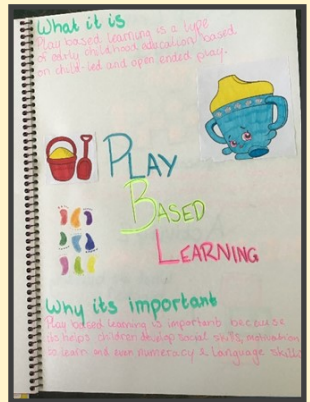 What it is
Play based learning is a type
of early childhood education based
on child-led and open ended play.
PLAY
BASED
LEARNING
Why its important
Play based learning is important because
its helps children develop social skills, motivation
to learn and even numeracy & language skills